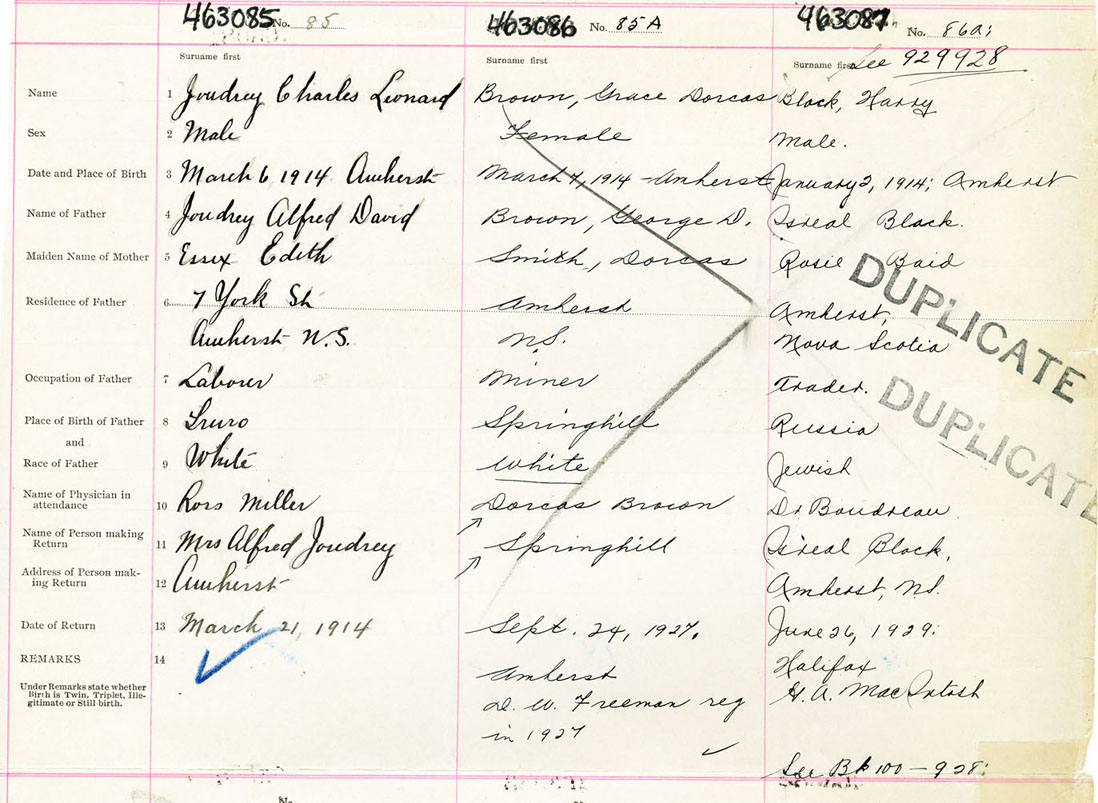 463085 No. 85 463086 No. 85 A 463087 No. 86a;
See 929928
Surname first Surname first Surname first
Name 1 Joudrey Charles Leonard Brown, Grace Dorcas Block, Harry
Sex 2 Male Female Male.
Date and Place of Birth 3 March 6 1914 Amherst March 4, 1914 - Amherst January 2, 1914; Amherst
Name of Father 4 Joudrey Alfred David Brown, George D. Isreal Block.
Maiden Name of Mother 5 Essex Edith Smith, Dorcas Rosie Baid
Residence of Father 6 7 York St Amherst Amherst,
Amherst N.S. N.S. Nova Scotia
Occupation of Father 7 Laborer Miner Trader.
Place of Birth of Father 8 Truro Springhill Russia
and
Race of Father 9 White White Jewish
Name of Physician in
attendance 10 Ross Miller Dorcas Brown Dr Boudreau
Name of Person making
Return 11 Mrs Alfred Joudrey Springhill Isreal Block,
Address of Person mak-
ing Return 12 Amherst Amherst, N.S.
Date of Return 13 March 21, 1914 Sept. 24, 1927. June 26, 1929.
REMARKS 14 Amherst Halifax
Under Remarks state whether
Birth is Twin, Triplet, Ille-
gitimate or Still-birth.
D. W. Freeman reg H. A. MacIntosh
in 1927
See Bk 100 - 928;
DUPLICATE
DUPLICATE
No.